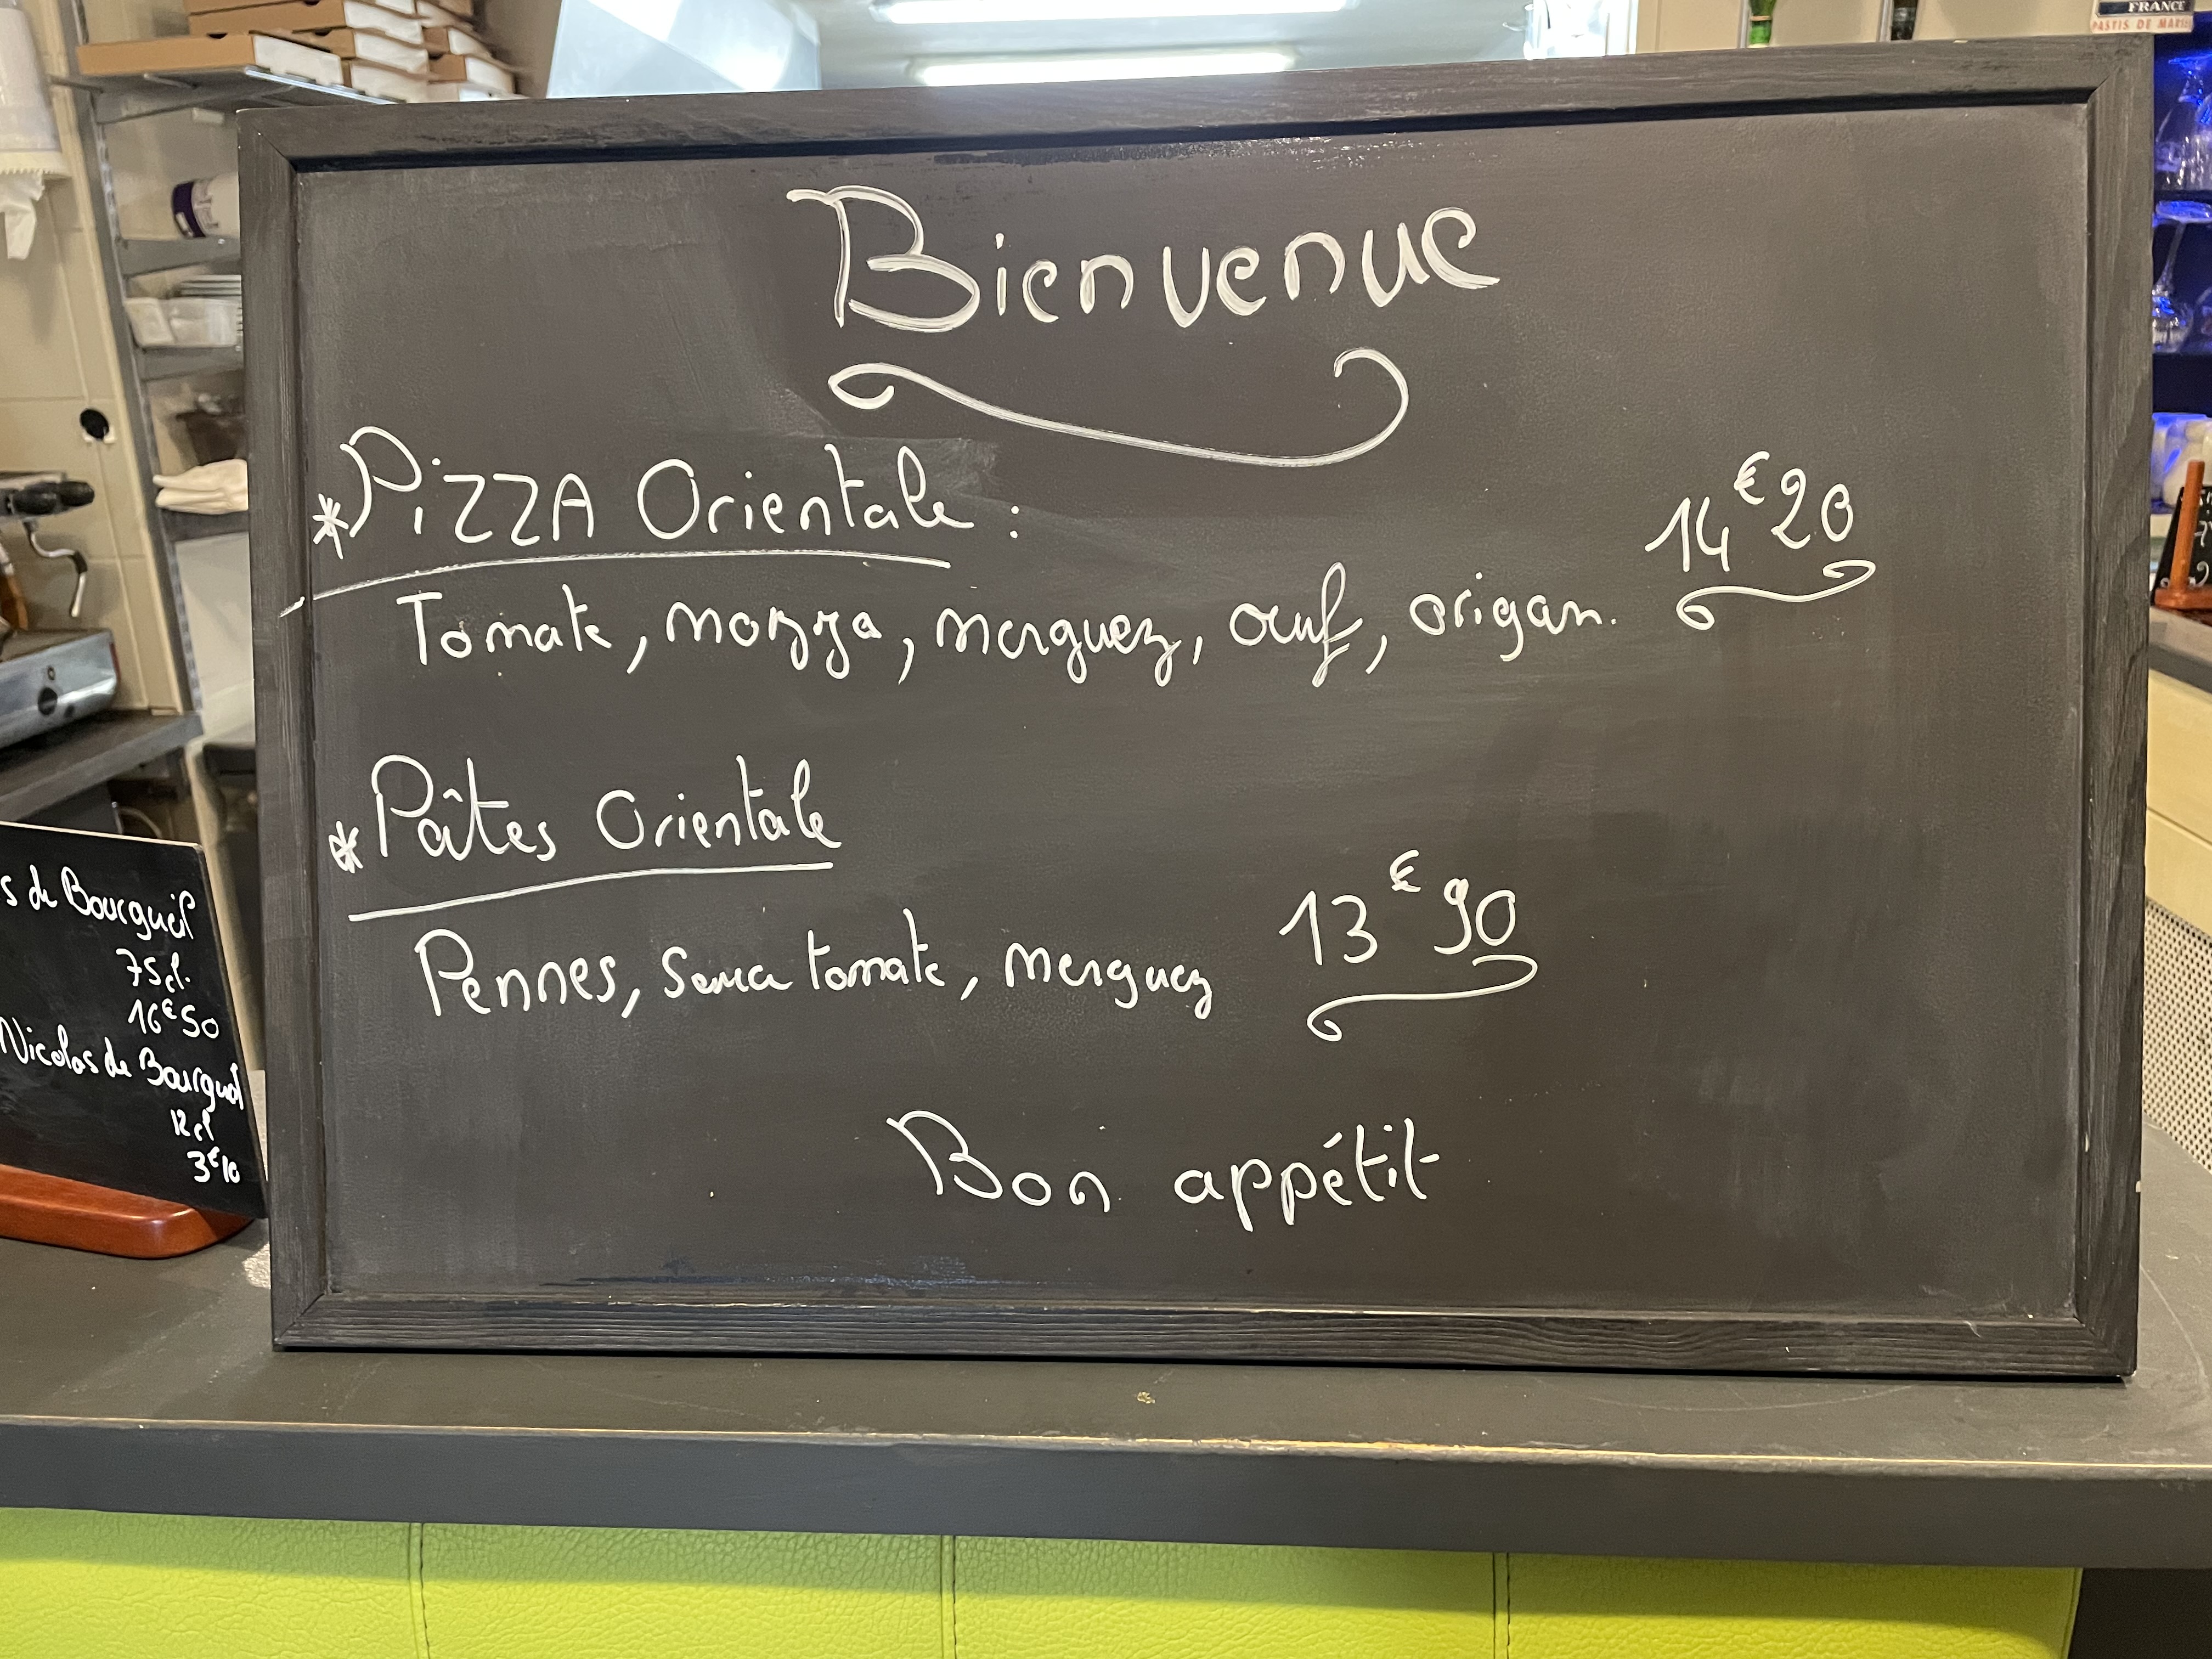 Bienvenue
*PiZZA Orientale :
14€20
Tomate, mozza, merguez, œuf, origan.
*Pâtes Orientale
Pennes, sauce tomate, merguez
13€90
Bon appétit
s de Bourgueil
75cl.
16€50
Nicolas de Bourgueil
12cl
3€10
FRANCE
PASTIS DE MARS